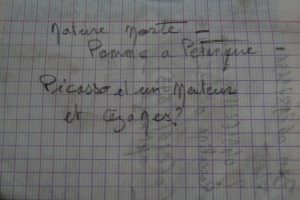 Nature Morte –
Pomme a Pétanque
Picasso et un Menteur
et Cézanes?